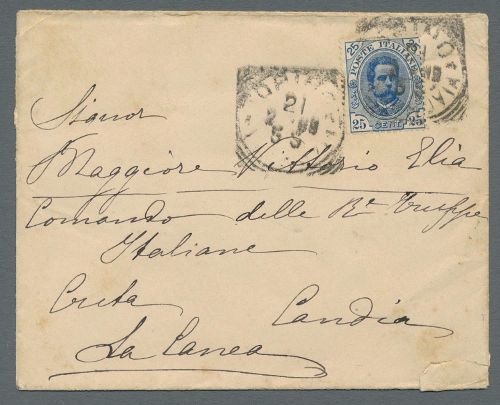 25 POSTE ITALIANE 25
25 CENT. 25
TORINO
21
Signor
Maggiore Vittorio Elia
Comando delle Re Truppe
Italiane
Creta Candia
La Canea